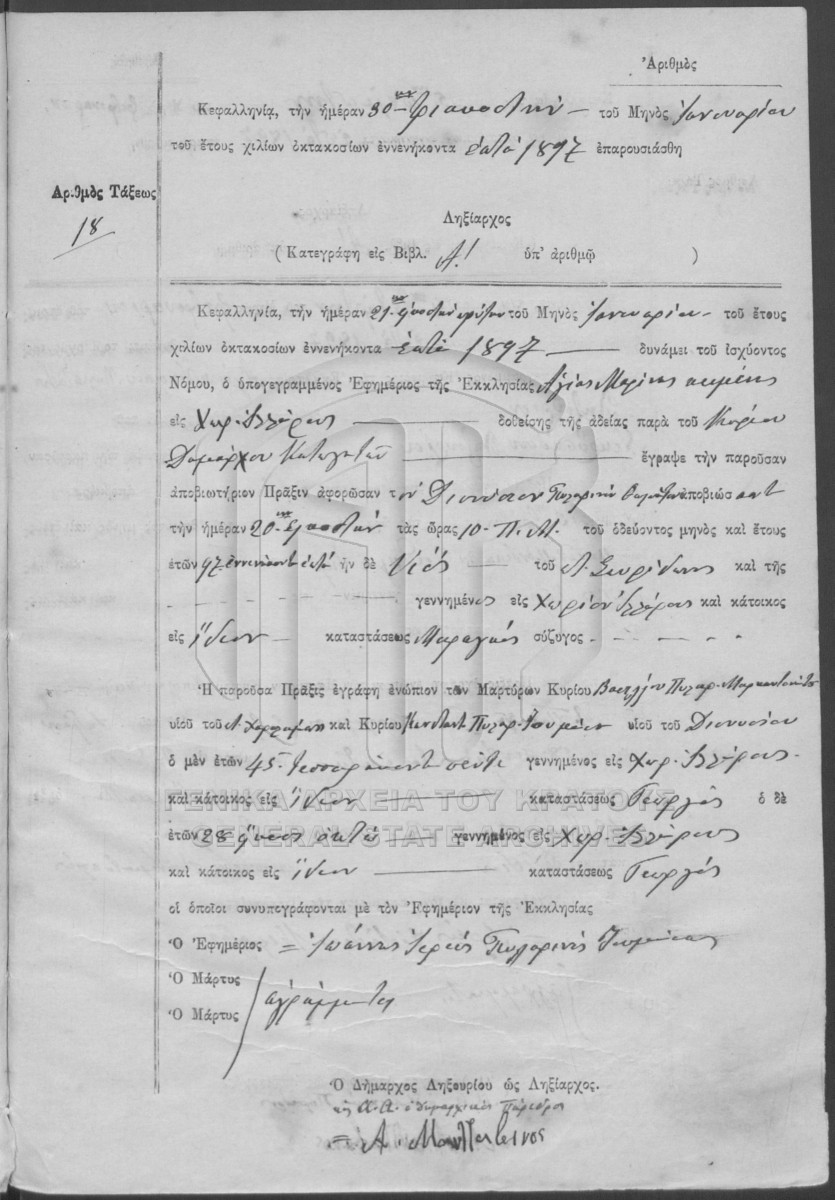 Ἀριθμὸς
Κεφαλληνίᾳ, τὴν ἡμέραν 30 τριακοστὴν τοῦ Μηνὸς Ἰανουαρίου
τοῦ ἔτους χιλίων ὀκτακοσίων ἐννενήκοντα ἑπτὰ 1897 ἐπαρουσιάσθη
Ἀριθμὸς Τάξεως
18
Ληξίαρχος
(Κατεγράφη εἰς Βιβλ. Α! ὑπ' ἀριθμῷ )
Κεφαλληνία, τὴν ἡμέραν 21 εἰκοστὴν πρώτην τοῦ Μηνὸς Ἰανουαρίου τοῦ ἔτους
χιλίων ὀκτακοσίων ἐννενήκοντα ἑπτὰ 1897 δυνάμει τοῦ ἰσχύοντος
Νόμου, ὁ ὑπογεγραμμένος Ἐφημέριος τῆς Ἐκκλησίας Ἁγίας Μαρίνης κειμένης
εἰς δοθείσης τῆς ἀδείας παρὰ τοῦ Κυρίου
Δημάρχου ἔγραψε τὴν παροῦσαν
ἀποβιωτήριον Πρᾶξιν ἀφορῶσαν τὸν Διονύσιον ἀποβιώσαντ
τὴν ἡμέραν 20 εἰκοστὴν τὰς ὥρας 10 Π.Μ. τοῦ ὁδεύοντος μηνὸς καὶ ἔτους
ἐτῶν 97 ἐννενήκοντα ἑπτὰ ἦν δὲ Υἱὸς τοῦ Π. Σπυρίδωνος καὶ τῆς
γεννημένος εἰς Χωρίον καὶ κάτοικος
εἰς ἴδιον καταστάσεως Μαραγκὸς σύζυγος
Ἡ παροῦσα Πρᾶξις ἐγράφη ἐνώπιον τῶν Μαρτύρων Κυρίου Βασιλείου
υἱοῦ τοῦ καὶ Κυρίου υἱοῦ τοῦ Διονυσίου
ὁ μὲν ἐτῶν 45 τεσσαράκοντα πέντε γεννημένος εἰς Χωρ.
καὶ κάτοικος εἰς ἴδιον καταστάσεως Γεωργὸς ὁ δὲ
ἐτῶν 28 εἴκοσι ὀκτὼ γεννημένος εἰς Χωρ.
καὶ κάτοικος εἰς ἴδιον καταστάσεως Γεωργὸς
οἱ ὁποῖοι συνυπογράφονται μὲ τὸν Ἐφημέριον τῆς Ἐκκλησίας
Ὁ Ἐφημέριος = Ἰωάννης Ἱερεὺς
Ὁ Μάρτυς
Ὁ Μάρτυς ἀγράμματοι
Ὁ Δήμαρχος Ληξουρίου ὡς Ληξίαρχος.
ὁ δημαρχικὸς Πάρεδρος
ΓΕΝΙΚΑ ΑΡΧΕΙΑ ΤΟΥ ΚΡΑΤΟΥΣ
GENERAL STATE ARCHIVES